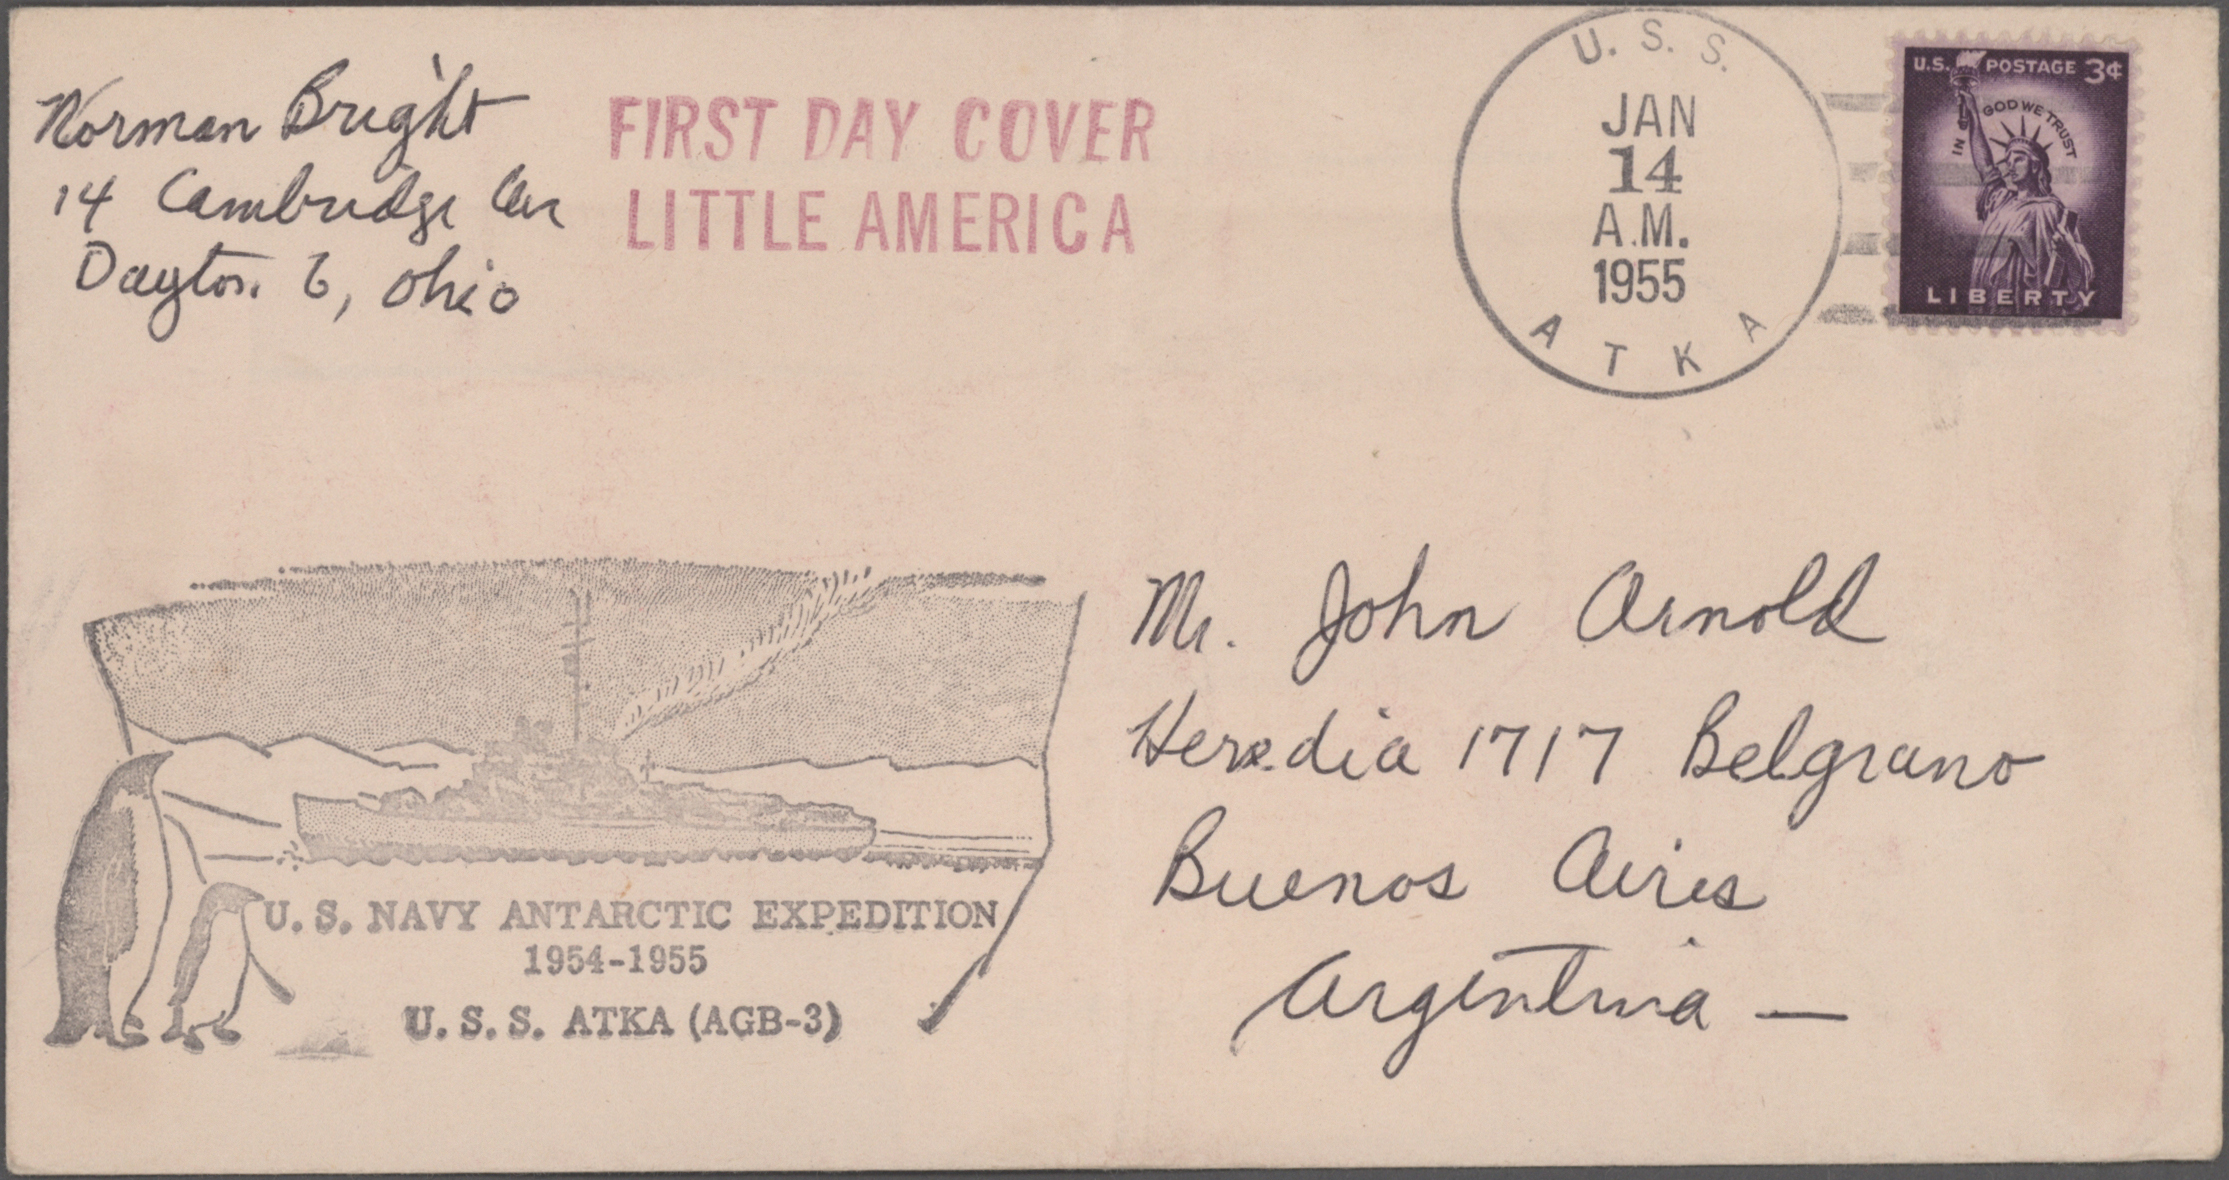 Norman Bright
14 Cambridge Av
Dayton 6, Ohio
FIRST DAY COVER
LITTLE AMERICA
U. S. S.
JAN
14
A.M.
1955
ATKA
U.S. POSTAGE 3¢
IN GOD WE TRUST
LIBERTY
Mr. John Arnold
Heredia 1717 Belgrano
Buenos Aires
Argentina —
U. S. NAVY ANTARCTIC EXPEDITION
1954-1955
U. S. S. ATKA (AGB-3)